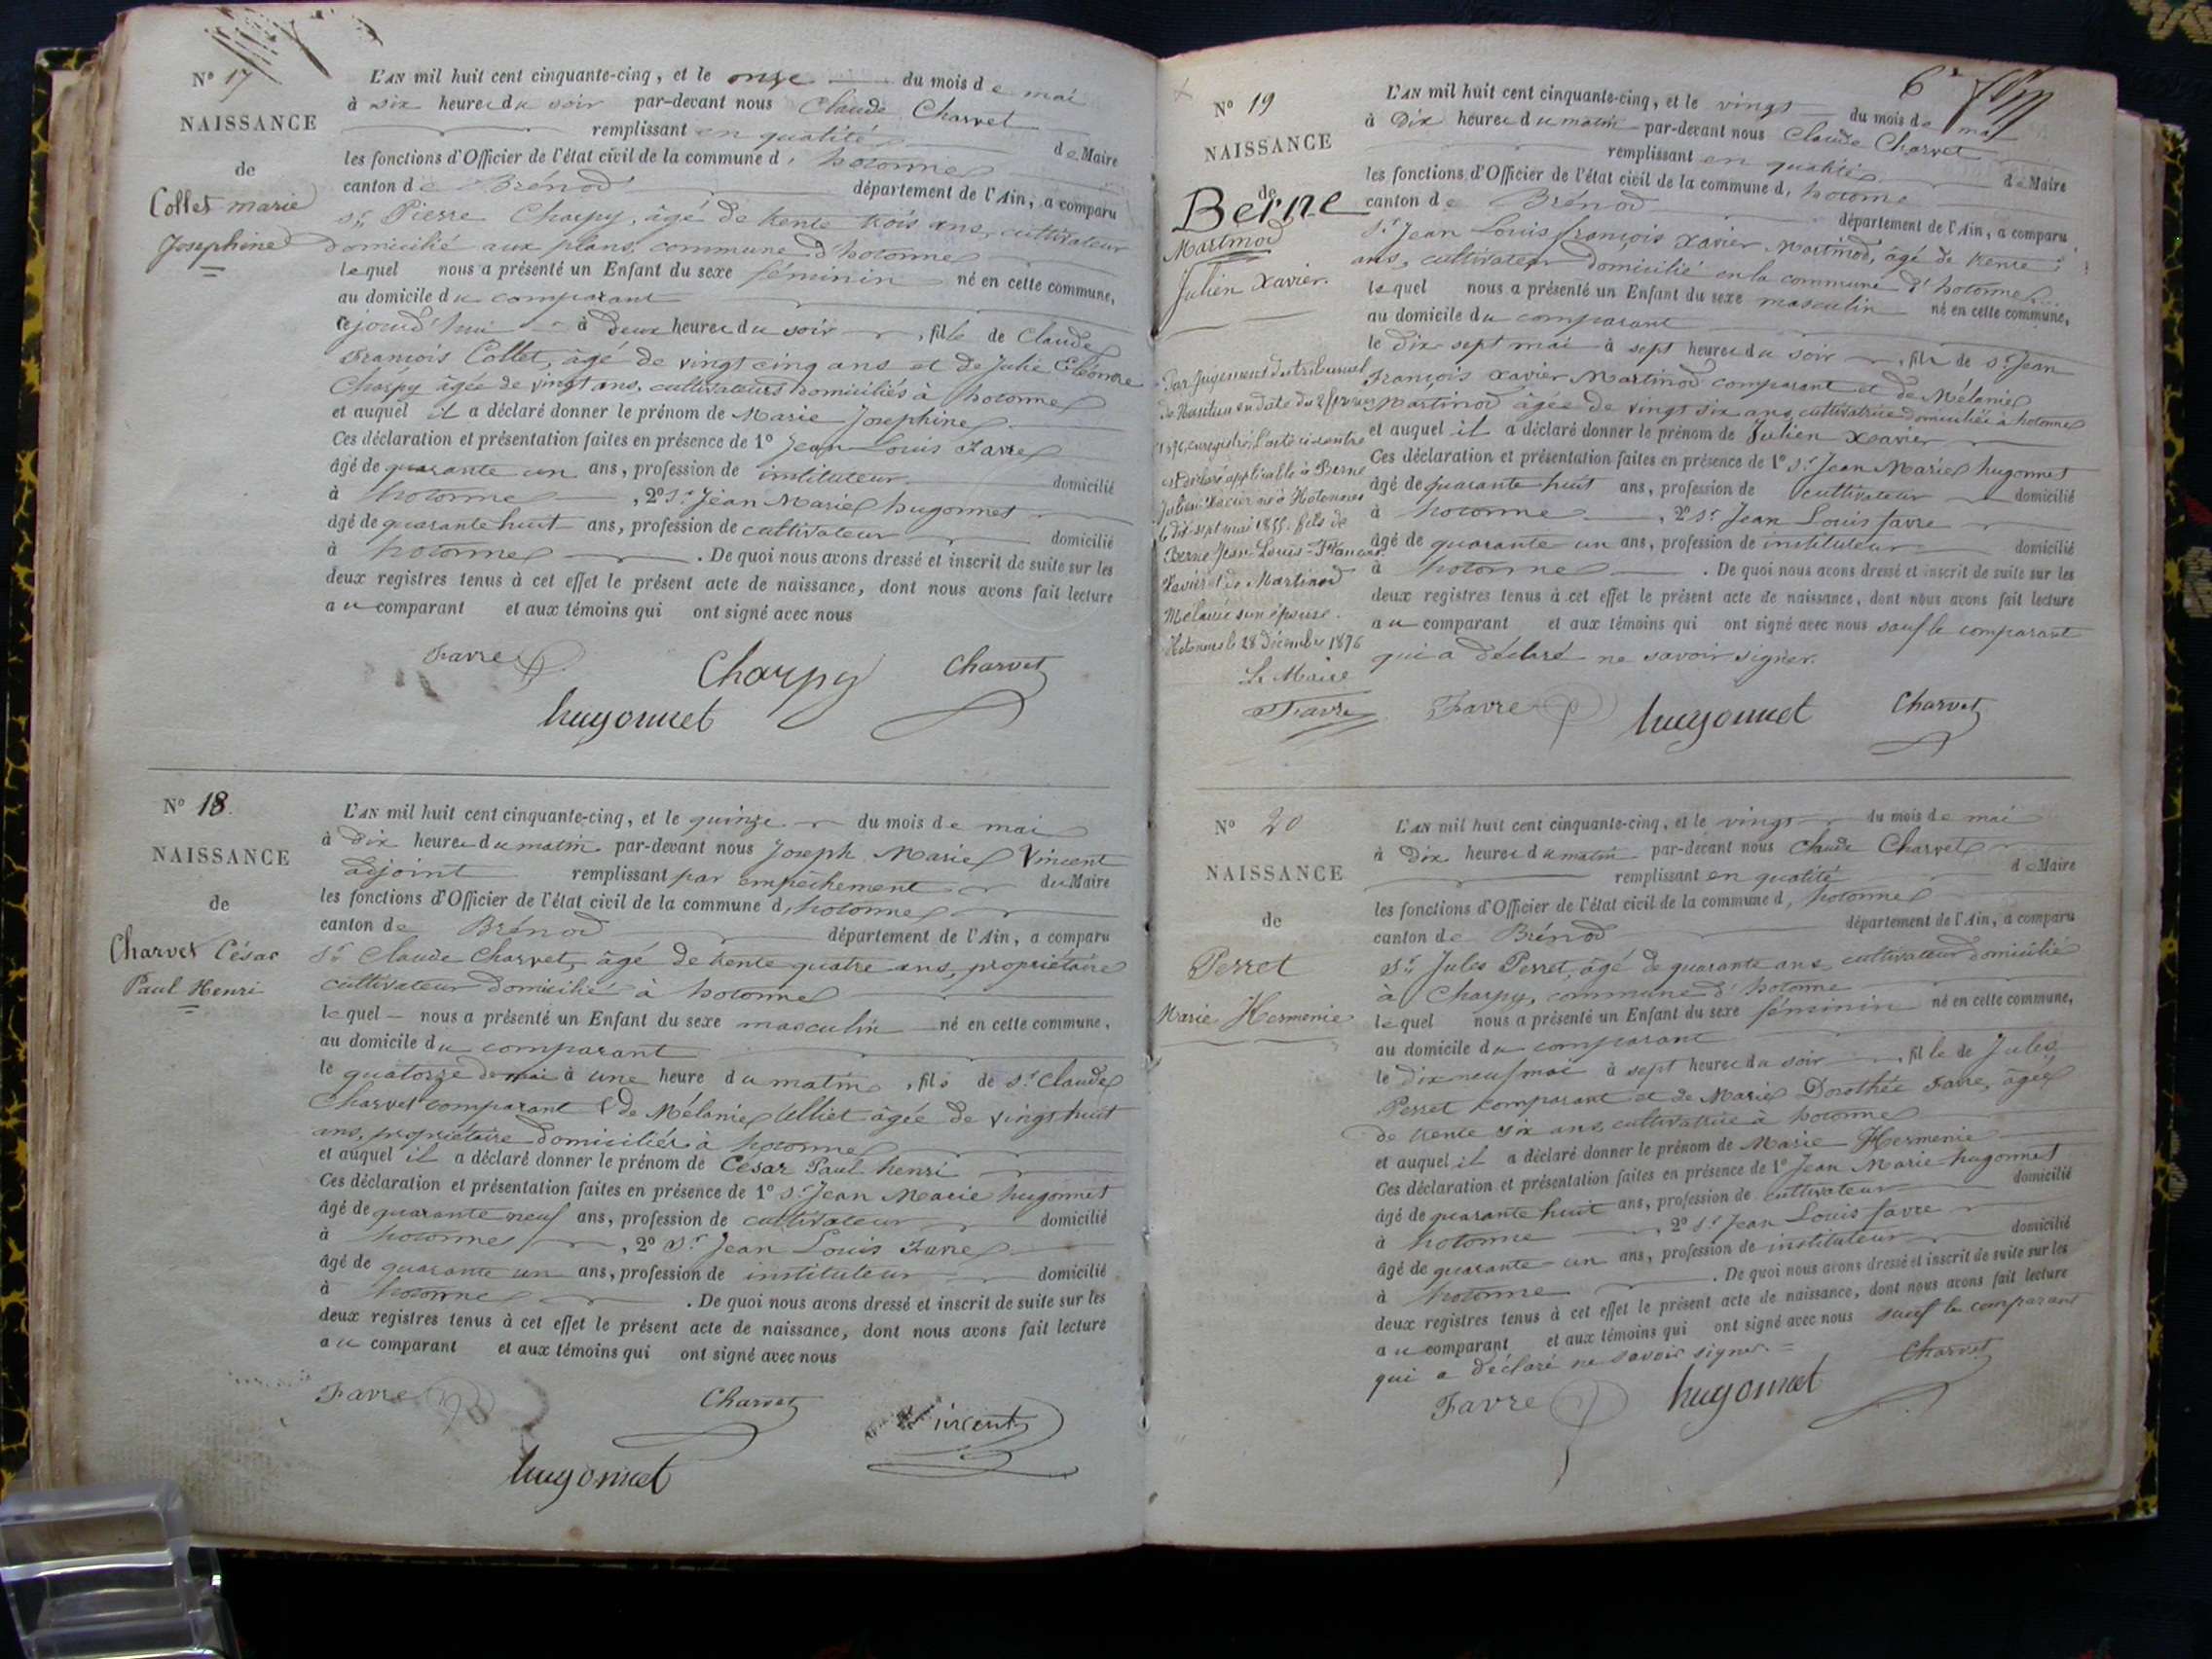 Nº 17
NAISSANCE
de
Collet marie
Josephine
L'AN mil huit cent cinquante-cinq, et le onze du mois de mai
à six heures du soir par-devant nous Claude Charvet
remplissant en qualité de Maire
les fonctions d'Officier de l'état civil de la commune d' hotonnes
canton de Brénod département de l'Ain, a comparu
Sr Pierre Charpy, âgé de trente trois ans, cultivateur
domicilié aux plans, commune d'hotonnes
lequel nous a présenté un Enfant du sexe féminin né en cette commune,
au domicile du comparant
cejourd'hui à deux heures du soir, fille de Claude
François Collet, âgé de vingt cinq ans et de Julie Eléonore
Charpy âgée de vingt ans, cultivateurs domiciliés à hotonnes
et auquel il a déclaré donner le prénom de Marie Josephine
Ces déclaration et présentation faites en présence de 1º Jean Louis Favre
âgé de quarante un ans, profession de instituteur domicilié
à hotonnes, 2º Sr Jean Marie hugonnet
âgé de quarante huit ans, profession de cultivateur domicilié
à hotonnes. De quoi nous avons dressé et inscrit de suite sur les
deux registres tenus à cet effet le présent acte de naissance, dont nous avons fait lecture
au comparant et aux témoins qui ont signé avec nous
Favre Charpy Charvet
hugonnet
Nº 18.
NAISSANCE
de
Charvet César
Paul Henri
L'AN mil huit cent cinquante-cinq, et le quinze du mois de mai
à dix heures du matin par-devant nous Joseph Marie Vincent
adjoint remplissant par empêchement du Maire
les fonctions d'Officier de l'état civil de la commune d, hotonnes
canton de Brénod département de l'Ain, a comparu
Sr Claude Charvet, âgé de trente quatre ans, propriétaire
cultivateur domicilié à hotonnes
lequel nous a présenté un Enfant du sexe masculin né en cette commune,
au domicile du comparant
le quatorze de mai à une heure du matin, fils de Sr Claude
Charvet comparant & de Mélanie Ulliet âgée de vingt huit
ans, propriétaire domiciliés à hotonnes
et auquel il a déclaré donner le prénom de César Paul henri
Ces déclaration et présentation faites en présence de 1º Sr Jean Marie hugonnet
âgé de quarante neuf ans, profession de cultivateur domicilié
à hotonnes, 2º Sr Jean Louis Favre
âgé de quarante un ans, profession de instituteur domicilié
à hotonnes. De quoi nous avons dressé et inscrit de suite sur les
deux registres tenus à cet effet le présent acte de naissance, dont nous avons fait lecture
au comparant et aux témoins qui ont signé avec nous
Favre Charvet Vincent
hugonnet
6e
Nº 19
NAISSANCE
de
Berne
Martinod
Julien Xavier.
Par Jugement du tribunal
de Nantua en date du 2
1876, enregistré, l'acte ci-contre
est déclaré applicable à Berne
Julien Xavier né à Hotonnes
le dix-sept mai 1855, fils de
Berne Jean-Louis-François
Xavier et de Martinod
Mélanie son épouse.
Hotonnes le 28 décembre 1876
Le Maire
Favre
L'AN mil huit cent cinquante-cinq, et le vingt du mois de mai
à Dix heures du matin par-devant nous Claude Charvet
remplissant en qualité de Maire
les fonctions d'Officier de l'état civil de la commune d, hotonnes
canton de Brénod département de l'Ain, a comparu
Sr Jean Louis françois Xavier Martinod, âgé de trente
ans, cultivateur domicilié en la commune d'hotonnes
lequel nous a présenté un Enfant du sexe masculin né en cette commune,
au domicile du comparant
le dix sept mai à sept heures du soir, fils de Sr Jean
François Xavier Martinod comparant et de Mélanie
Martinod âgée de vingt six ans, cultivatrice domiciliée à hotonnes
et auquel il a déclaré donner le prénom de Julien Xavier
Ces déclaration et présentation faites en présence de 1º Sr Jean Marie hugonnet
âgé de quarante huit ans, profession de cultivateur domicilié
à hotonnes, 2º Sr Jean Louis favre
âgé de quarante un ans, profession de instituteur domicilié
à hotonnes. De quoi nous avons dressé et inscrit de suite sur les
deux registres tenus à cet effet le présent acte de naissance, dont nous avons fait lecture
au comparant et aux témoins qui ont signé avec nous sauf le comparant
qui a déclaré ne savoir signer.
Favre hugonnet Charvet
Nº 20
NAISSANCE
de
Perret
Marie Hermenie
L'AN mil huit cent cinquante-cinq, et le vingt du mois de mai
à Dix heures du matin par-devant nous Claude Charvet
remplissant en qualité de Maire
les fonctions d'Officier de l'état civil de la commune d, hotonnes
canton de Brénod département de l'Ain, a comparu
Sr Jules Perret, âgé de quarante ans, cultivateur domicilié
à Charpy, commune d'hotonne
lequel nous a présenté un Enfant du sexe féminin né en cette commune,
au domicile du comparant
le dix neuf mai à sept heures du soir, fille de Jules
Perret comparant et de Marie Dorothée Favre, âgée
de trente six ans, cultivatrice à hotonnes
et auquel il a déclaré donner le prénom de Marie Hermenie
Ces déclaration et présentation faites en présence de 1º Jean Marie hugonnet
âgé de quarante huit ans, profession de cultivateur domicilié
à hotonne, 2º Sr Jean Louis favre
âgé de quarante un ans, profession de instituteur domicilié
à hotonne. De quoi nous avons dressé et inscrit de suite sur les
deux registres tenus à cet effet le présent acte de naissance, dont nous avons fait lecture
au comparant et aux témoins qui ont signé avec nous sauf le comparant
qui a déclaré ne savoir signer.
Favre hugonnet Charvet